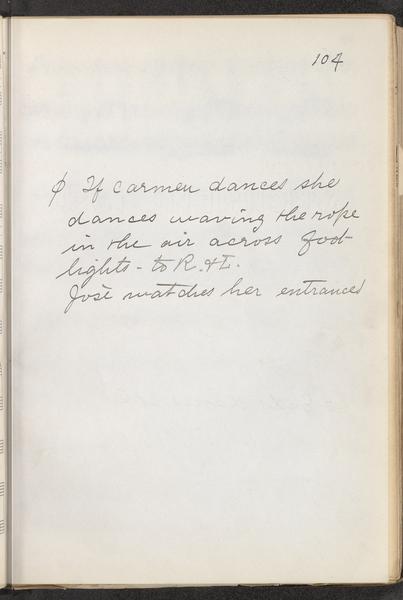 104
φ If Carmen dances she
dances waving the rope
in the air across foot-
lights - to R. & L.
José watches her entranced